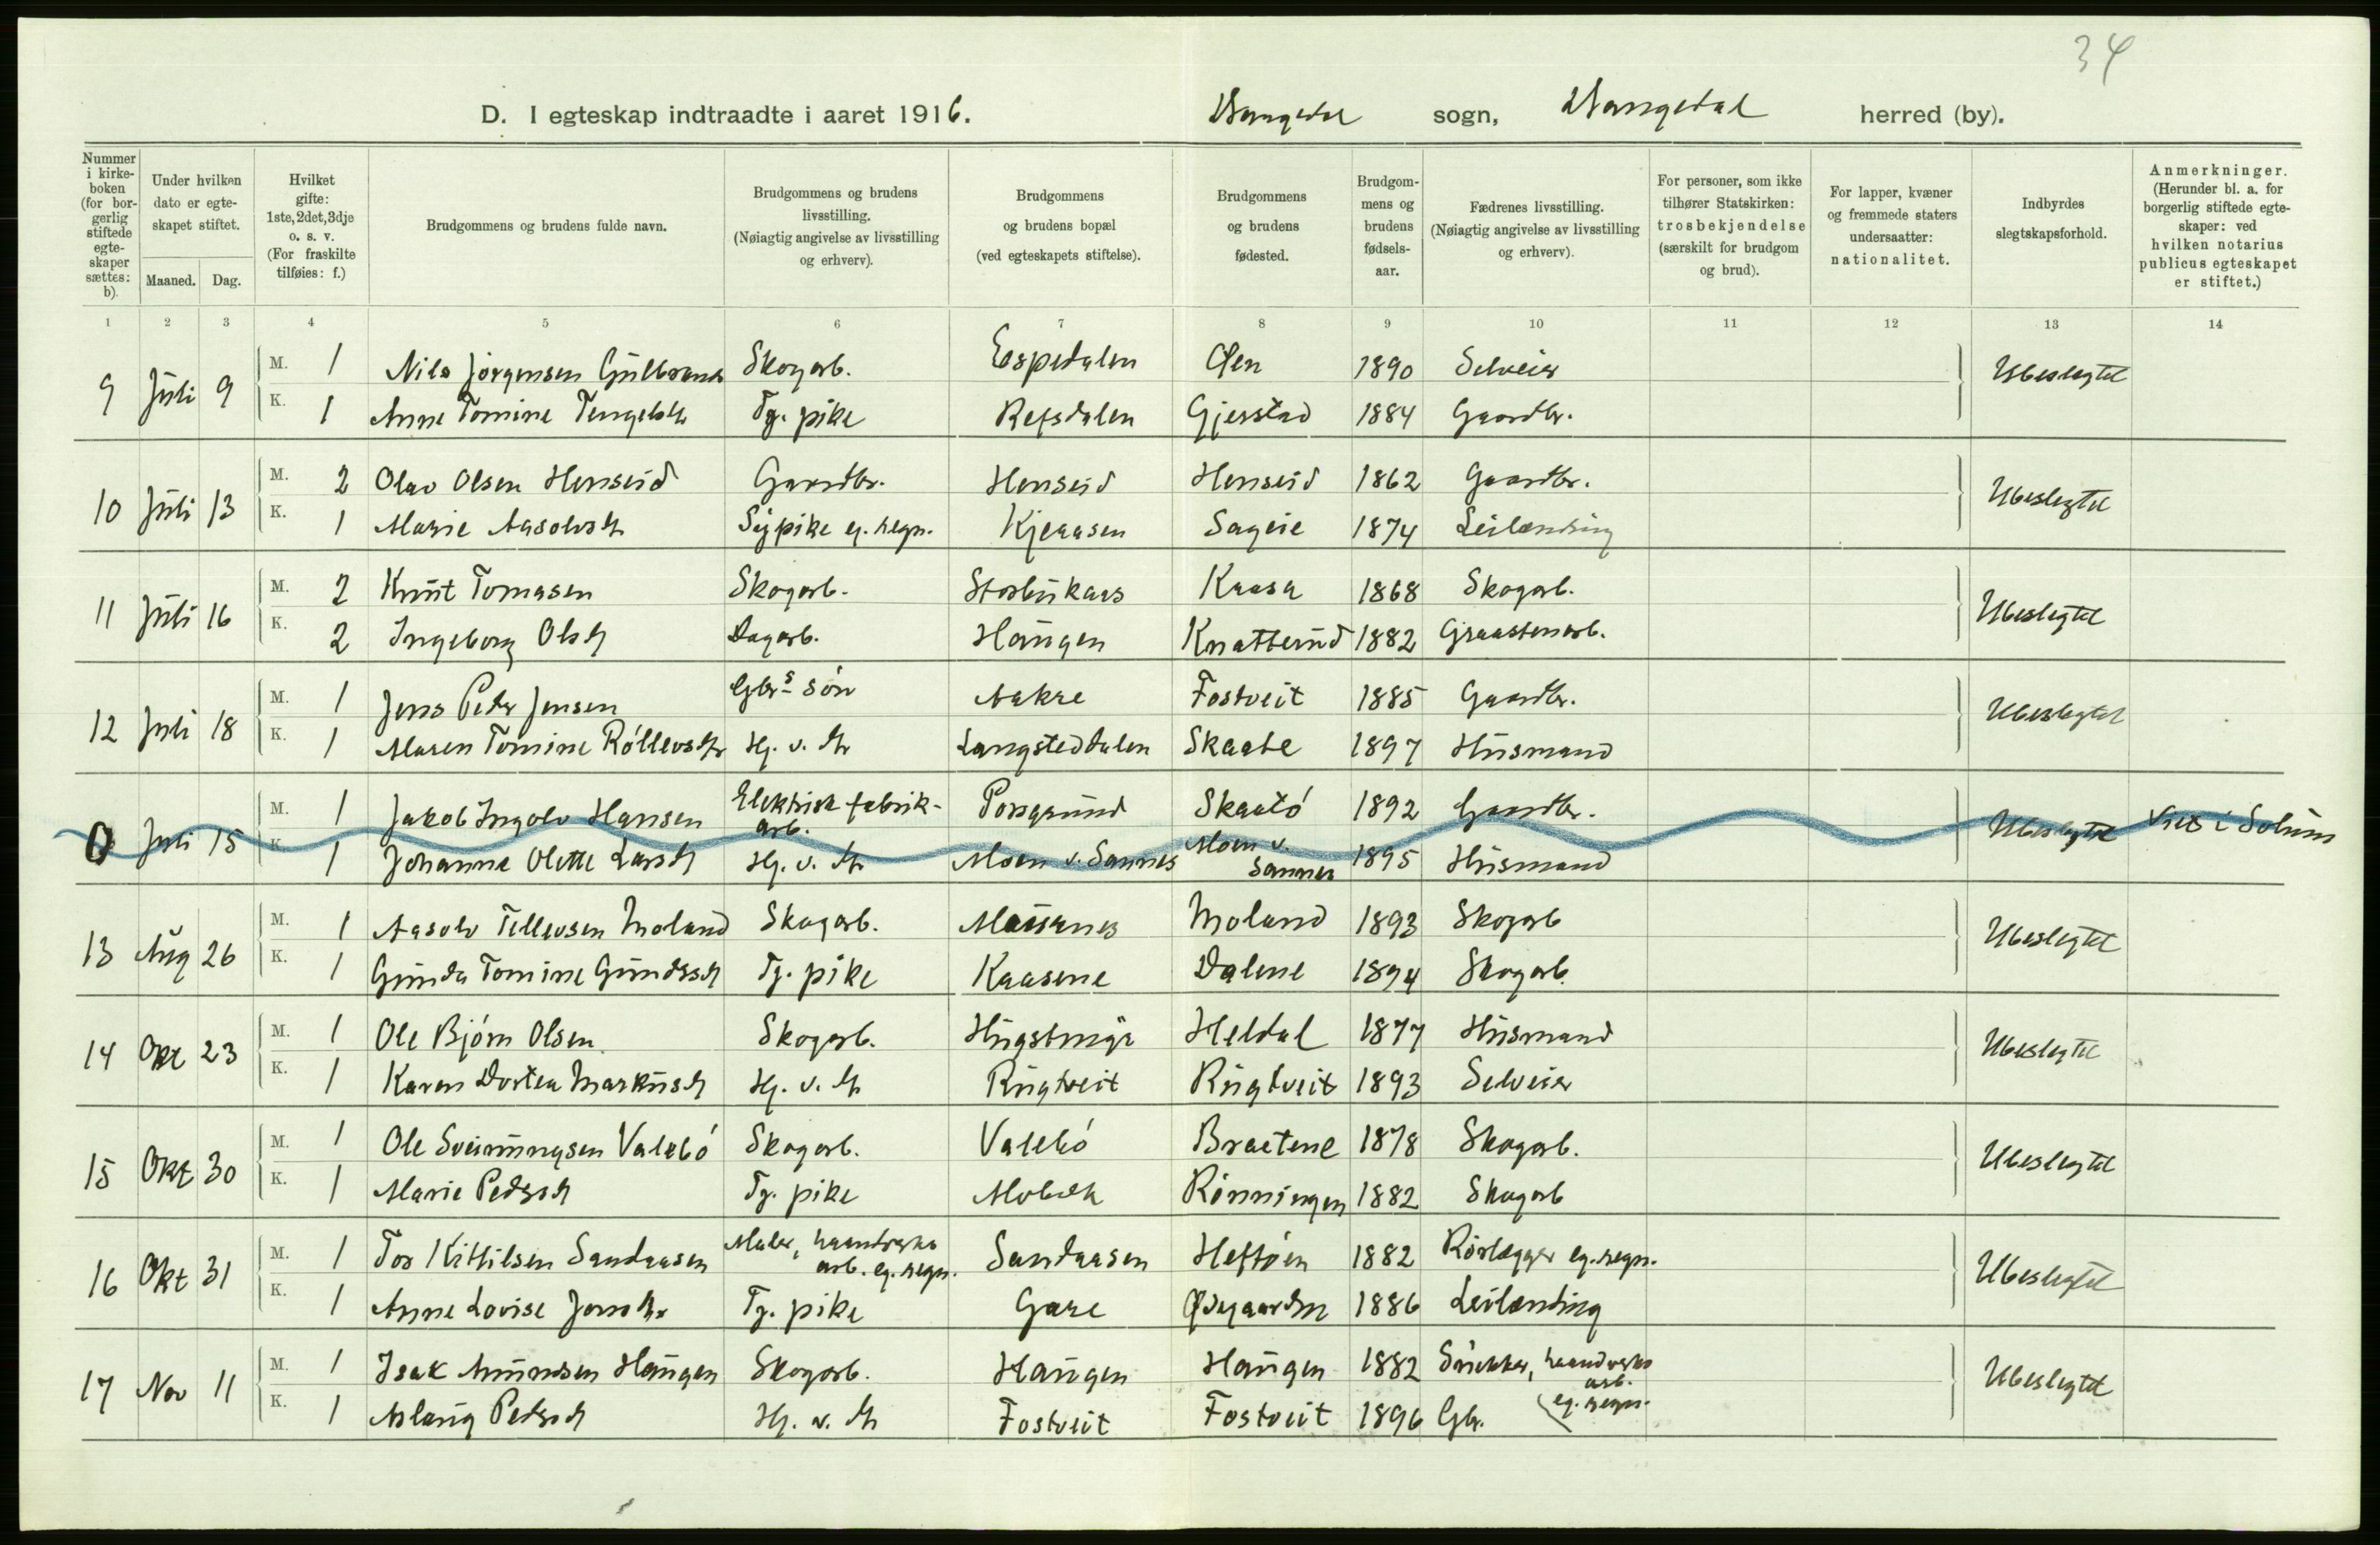 34
D. I egteskap indtraadte i aaret 1916. Drangedal sogn, Drangedal herred (by).
Nummer i kirkeboken (for borgerlig stiftede egteskaper sættes: b).
Under hvilken dato er egteskapet stiftet.
Maaned. Dag.
Hvilket gifte: 1ste, 2det, 3dje o. s. v. (For fraskilte tilføies: f.)
Brudgommens og brudens fulde navn.
Brudgommens og brudens livsstilling. (Nøiagtig angivelse av livsstilling og erhverv).
Brudgommens og brudens bopæl (ved egteskapets stiftelse).
Brudgommens og brudens fødested.
Brudgommens og brudens fødselsaar.
Fædrenes livsstilling. (Nøiagtig angivelse av livsstilling og erhverv).
For personer, som ikke tilhører Statskirken: trosbekjendelse (særskilt for brudgom og brud).
For lapper, kvæner og fremmede staters undersaatter: nationalitet.
Indbyrdes slegtskapsforhold.
Anmerkninger. (Herunder bl. a. for borgerlig stiftede egteskaper: ved hvilken notarius publicus egteskapet er stiftet.)
1 2 3 4 5 6 7 8 9 10 11 12 13 14
9 Juli 9 M. 1 Nils Jørgensen Gulbrands Skogarb. Espedalen Øen 1890 Selveier Ubeslegtet
K. 1 Anne Tomine Tengelsdtr Tj. pike Refsdalen Gjerstad 1884 Gaardbr.
10 Juli 13 M. 2 Olav Olsen Henseid Gaardbr. Henseid Henseid 1862 Gaardbr. Ubeslegtet
K. 1 Marie Aasolvsdtr Sypike eg. regn. Kjeaasen Sageie 1874 Leilænding
11 Juli 16 M. 2 Knut Tomasen Skogarb. Storbukaas Kaasa 1868 Skogarb. Ubeslegtet
K. 2 Ingeborg Olsdtr Dagarb. Haugen Knatterud 1882 Graastenarb.
12 Juli 18 M. 1 Jens Peder Jensen Gbrs søn Aakre Fostveit 1885 Gaardbr. Ubeslegtet
K. 1 Maren Tomine Rollevsdtr Hj. v. dtr Langsteddalen Skaabe 1897 Husmand
0 Juli 15 M. 1 Jakob Ingolv Hansen Elektrisk fabrik-arb. Porsgrund Skaatø 1892 Gaardbr. Ubeslegtet Viet i Solum
K. 1 Johanne Olette Larsdtr Hj. v. dtr Moen v. Sannes Moen v. Sannes 1895 Husmand
13 Aug 26 M. 1 Aasolv Tellevsen Moland Skogarb. Mausnes Moland 1893 Skogarb Ubeslegtet
K. 1 Gunda Tomine Gundersdtr Tj. pike Kaasene Dalene 1894 Skogarb.
14 Okt 23 M. 1 Ole Bjørn Olsen Skogarb. Hugstmyr Heldal 1877 Husmand Ubeslegtet
K. 1 Karen Dortea Markusdtr Hj. v. dtr Rugtveit Rugtveit 1893 Selveier
15 Okt 30 M. 1 Ole Sveinungsen Valebø Skogarb. Valebø Braetene 1878 Skogarb. Ubeslegtet
K. 1 Marie Pedersdtr Tj. pike Mobæk Rønningen 1882 Skogarb
16 Okt 31 M. 1 Tor Kittilsen Sandaasen Maler, haandverks arb. eg. regn. Sandaasen Heftøen 1882 Rørlægger eg. regn. Ubeslegtet
K. 1 Anne Lovise Jonsdtr Tj. pike Gare Ødegaarden 1886 Leilænding
17 Nov 11 M. 1 Isak Amundsen Haugen Skogarb. Haugen Haugen 1882 Snekker, haandverks arb. eg. regn. Ubeslegtet
K. 1 Aslaug Pedersdtr Hj. v. dtr Fostveit Fostveit 1896 Gbr.